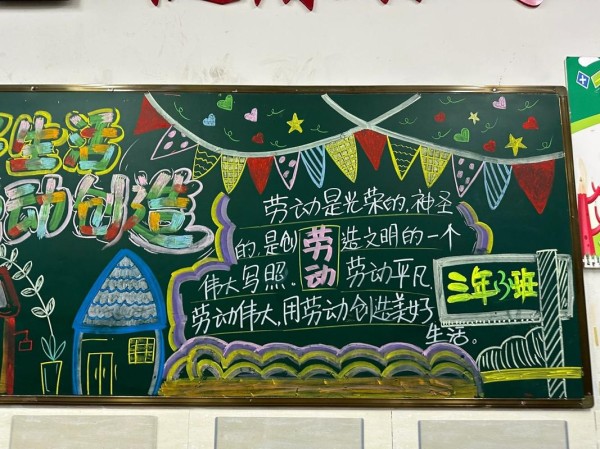 生活
动创造
劳动是光荣的,神圣
的,是创劳动造文明的一个
伟大写照。劳动平凡,
劳动伟大,用劳动创造美好
生活。
三年3班